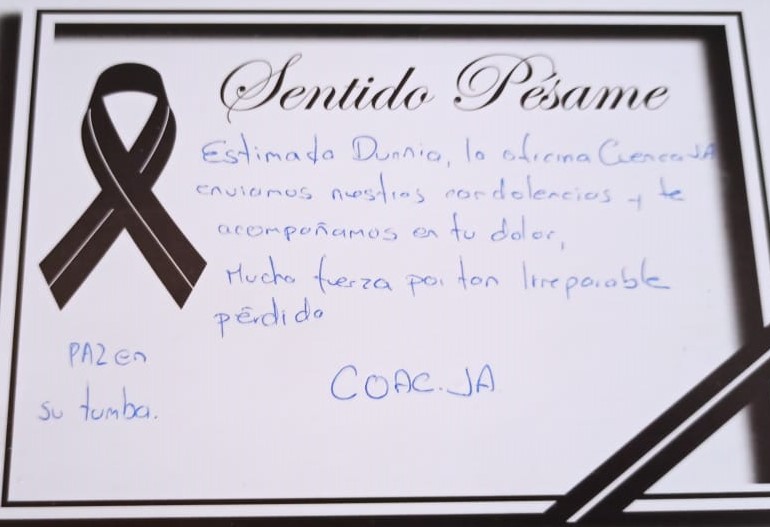 Sentido Pésame
Estimada Dunnia, la oficina Cuenca JA
enviamos nuestras condolencias y te
acompañamos en tu dolor,
Mucha fuerza por tan Irreparable
pérdida
PAZ en
su tumba.
COAC. JA